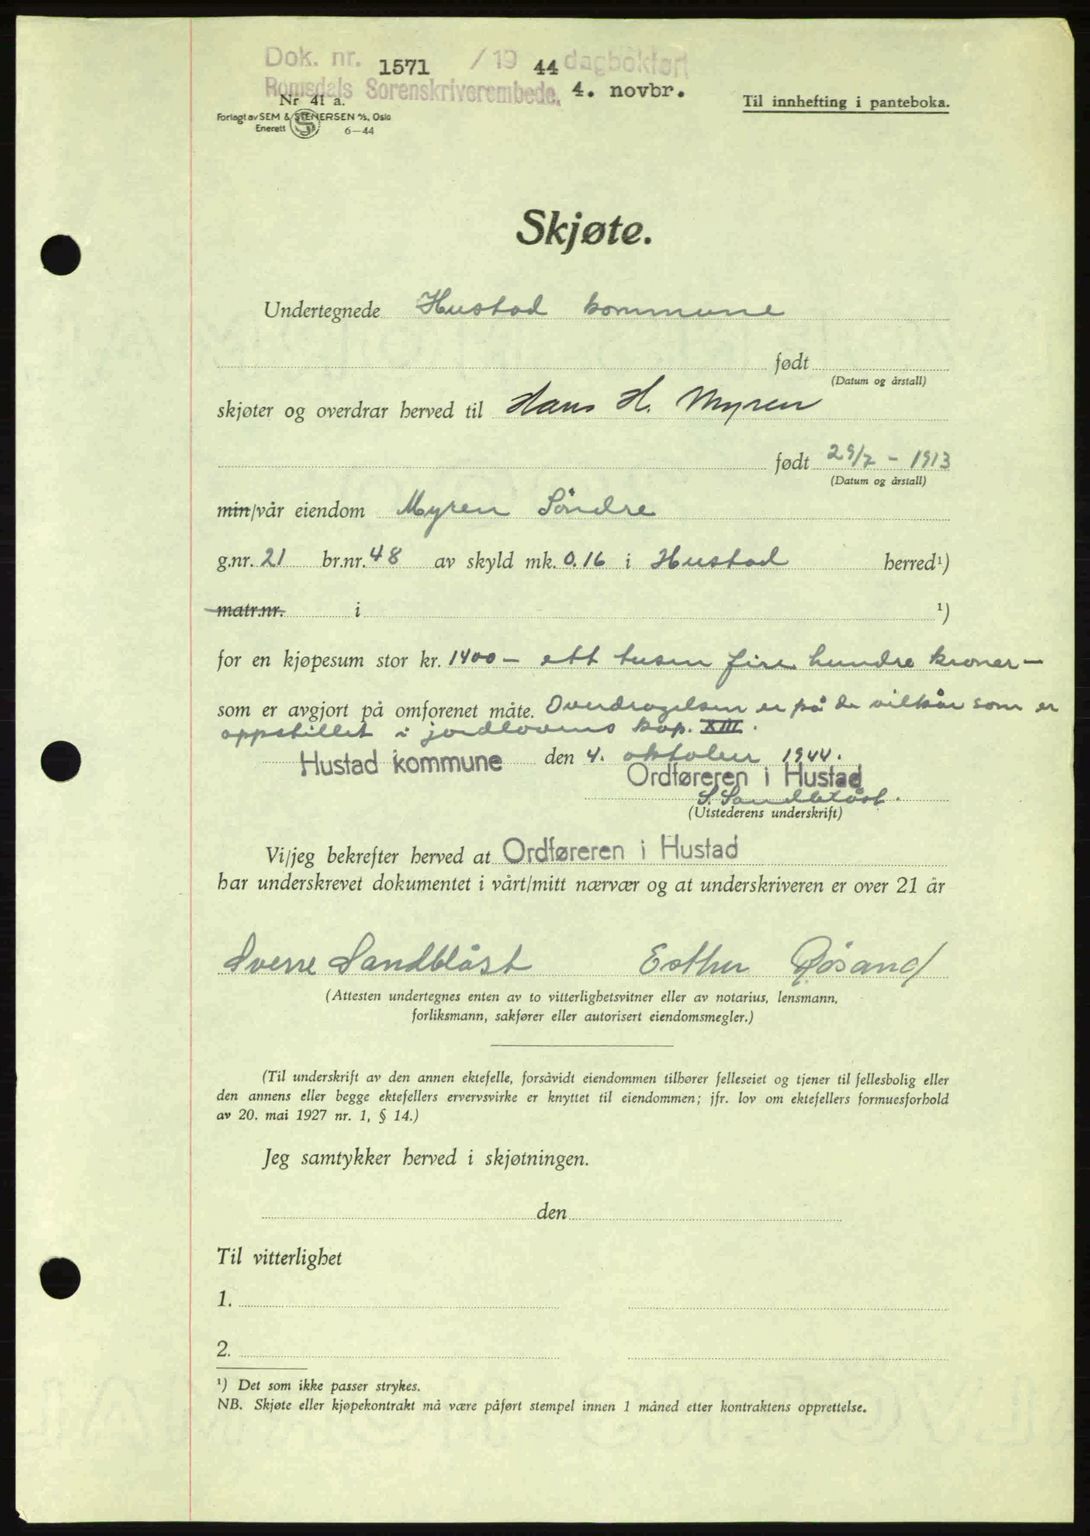 Dok. nr. 1571 /19 44 dagbokført
Romsdals Sorenskriverembede, 4. novbr.
Nr 41 a.
Til innhefting i panteboka.
Forlagt av SEM & STENERSEN A/S, Oslo
Enerett S 6—44
Skjøte.
Undertegnede Hustad kommune
født
(Datum og årstall)
skjøter og overdrar herved til Hans H. Myren
født 29/7 - 1913
(Datum og årstall)
min/vår eiendom Myren Söndre
g.nr. 21 br.nr. 48 av skyld mk. 0.16 i Hustad herred¹)
matr.nr. i ¹)
for en kjøpesum stor kr. 1400 - ett tusen fire hundre kroner -
som er avgjort på omforenet måte. Overdragelsen er på de vilkår som er
oppstillet i jordlovens kap. XIII.
Hustad kommune den 4. oktober 1944.
Ordføreren i Hustad
S. Sandblåst.
(Utstederens underskrift)
Vi/jeg bekrefter herved at Ordføreren i Hustad
har underskrevet dokumentet i vårt/mitt nærvær og at underskriveren er over 21 år
Sverre Sandblåst Esther Røsand
(Attesten undertegnes enten av to vitterlighetsvitner eller av notarius, lensmann,
forliksmann, sakfører eller autorisert eiendomsmegler.)
(Til underskrift av den annen ektefelle, forsåvidt eiendommen tilhører felleseiet og tjener til fellesbolig eller
den annens eller begge ektefellers ervervsvirke er knyttet til eiendommen; jfr. lov om ektefellers formuesforhold
av 20. mai 1927 nr. 1, § 14.)
Jeg samtykker herved i skjøtningen.
den
Til vitterlighet
1.
2.
¹) Det som ikke passer strykes.
NB. Skjøte eller kjøpekontrakt må være påført stempel innen 1 måned etter kontraktens opprettelse.